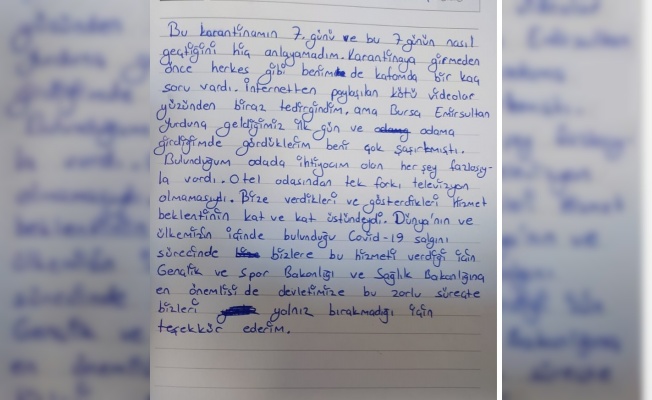 Bu karantinamın 7. günü ve bu 7 günün nasıl
geçtiğini hiç anlayamadım. Karantinaya girmeden
önce herkes gibi benimde de kafamda bir kaç
soru vardı. İnternetten paylaşılan kötü videolar
yüzünden biraz tedirgindim, ama Bursa Emirsultan
Yurduna geldiğimiz ilk gün ve odama
girdiğimde gördüklerim beni çok şaşırtmıştı.
Bulunduğum odada ihtiyacım olan her şey fazlasıy-
la vardı. Otel odasından tek farkı televizyon
olmamasıydı. Bize verdikleri ve gösterdikleri hizmet
beklentinin kat ve kat üstündeydi. Dünya'nın ve
ülkemizin içinde bulunduğu Covid-19 salgını
sürecinde bizlere bu hizmeti verdiği için
Gençlik ve Spor Bakanlığı ve Sağlık Bakanlığına
en önemlisi de devletimize bu zorlu süreçte
bizleri yalnız bırakmadığı için
teşekkür ederim.